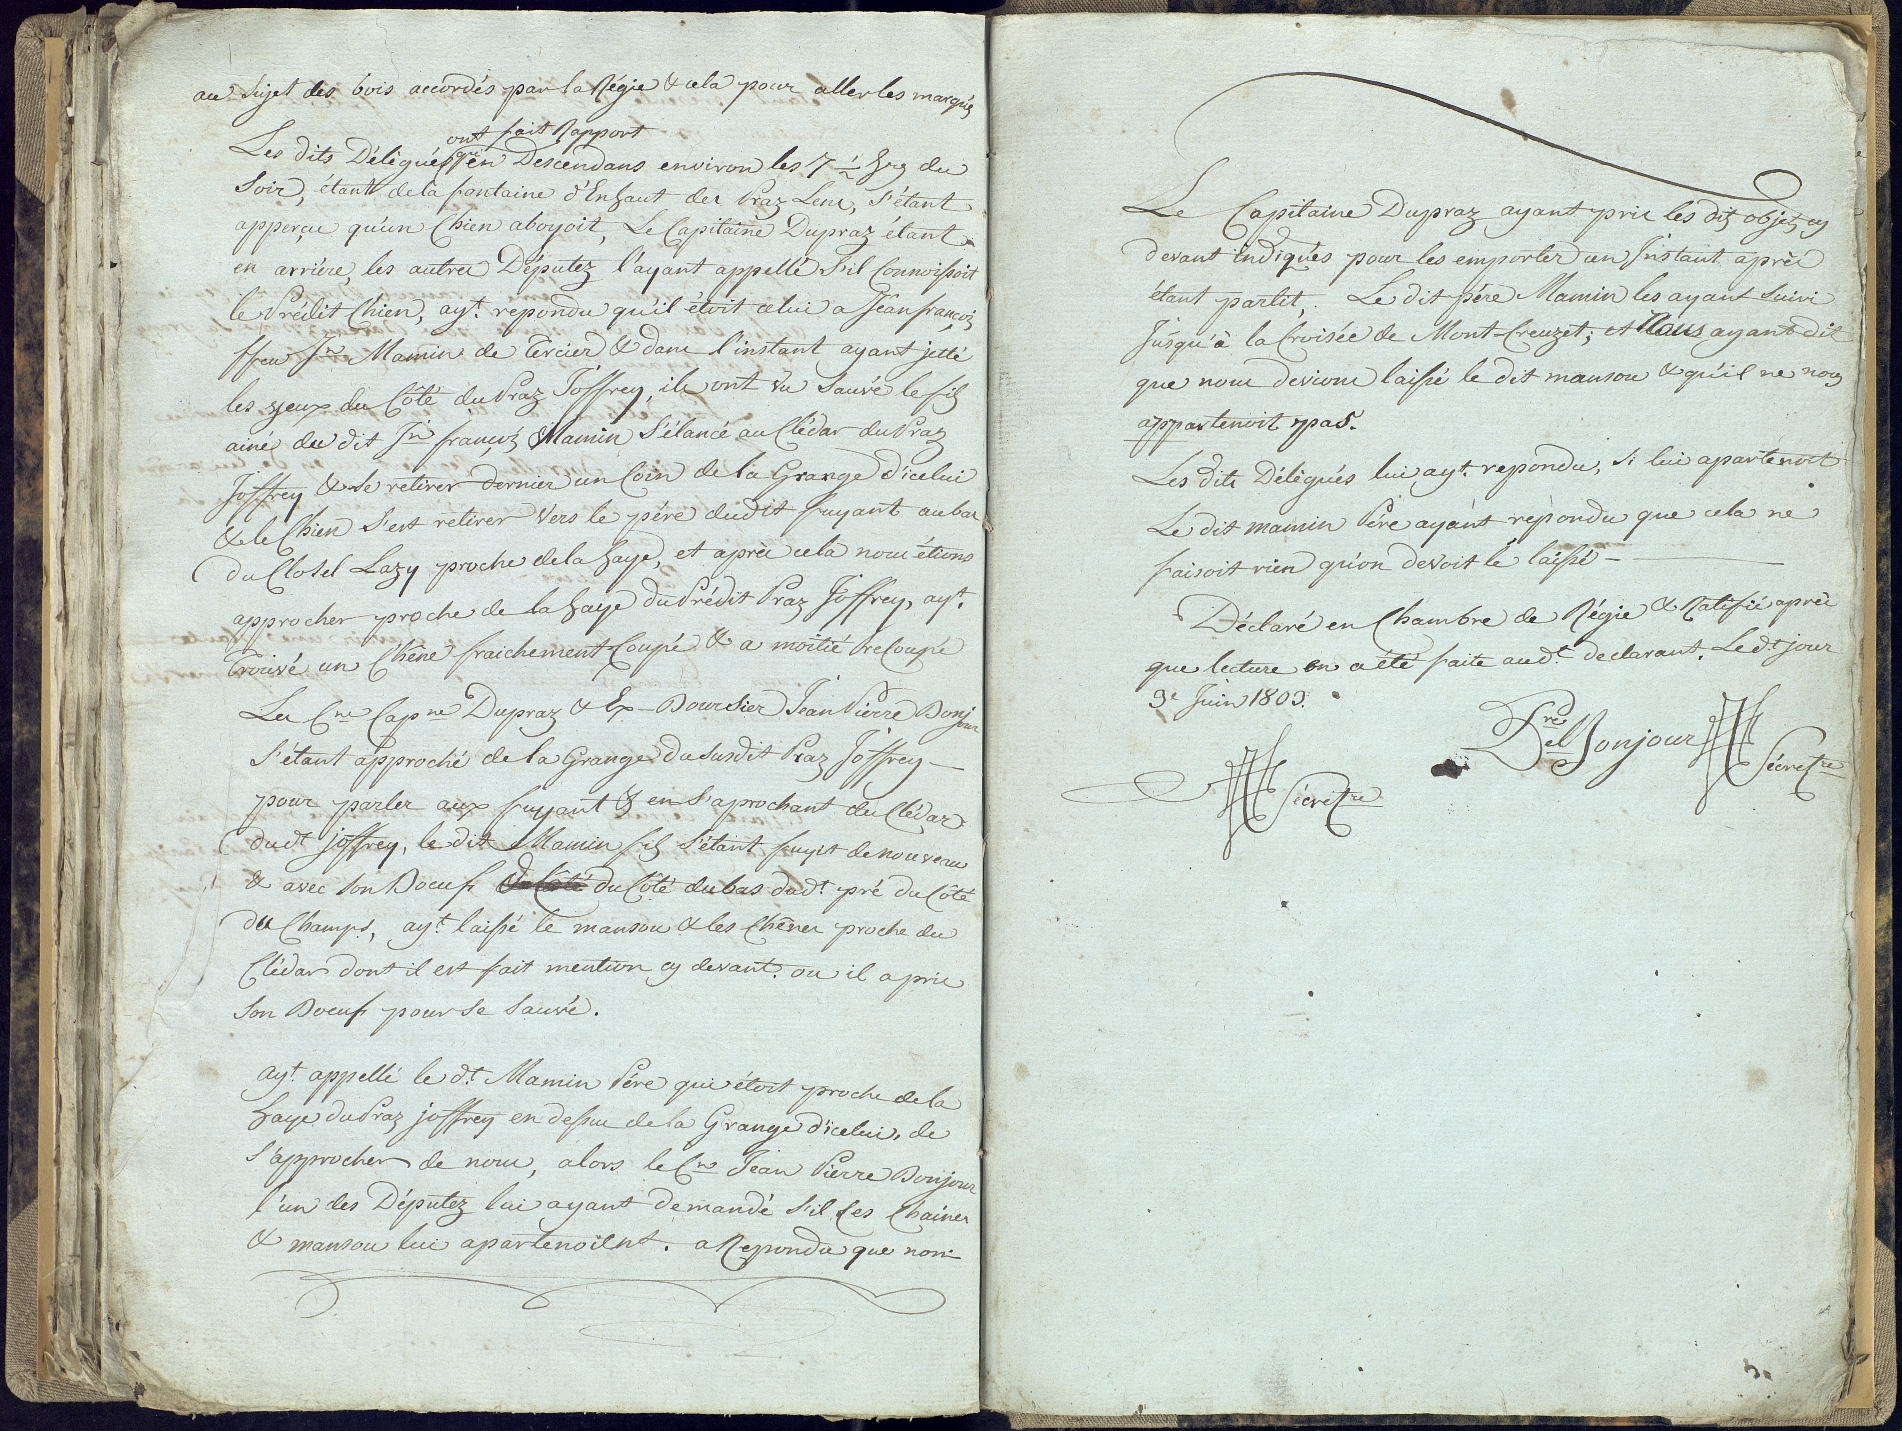 au Sujet des bois accordés par la Régie & cela pour aller les marqués
ont fait Rapport
Les dits Délégués qu'en Descendans environ les 7 ½ hrs du
Soir, étant de la fontaine d'Enhaut des Praz Lens, s'étant
apperçu qu'un Chien aboyoit, Le Capitaine Dupraz étant
en arriére, les autres Députez l'ayant appellé S'il Connoissoit
le Prédit Chien, ayt. repondu qu'il étoit celui a Jean françois
ffeu Jn Mamin de Tercier & dans l'instant ayant jetté
les yeux du Côté du Praz Joffrey, ils ont vu Sauvé le fils
ainé du dit Jn françois Mamin S'élancé au Clédar du Praz
Joffrey & se retirer dernier un Coin de la Grange d'icelui
& le Chien S'est retirer vers le pére dudit fuyant au bas
du Closel Lazy proche de la haye, et après cela nous étions
approcher proche de la haye du Prédit Praz Joffrey, ayt.
trouvé un Chêne fraichement Coupé & a moitié recoupé
Les Cns Capne Dupraz & Ex-Boursier Jean Pierre Bonjour
S'étant approché de la Grange du Susdit Praz Joffrey —
pour parler aux fuyant & en S'aprochant du Clédar
dudt joffrey, le dit Mamin fils S'étant fuyit de nouveau
& avec Son Boeuf du Côté du Côté du bas dudt. pré du Côté
du Champs, ayt. laissé le mansou & les Chênes proche du
Clédar dont il est fait mention cy devant. ou il a pris
Son Boeuf pour se Sauvé.
ayt. appellé le dt. Mamin Pére qui étoit proche de la
haye du Praz joffrey en dessus de la Grange d'icelui, de
S'approcher de nous, alors le Cn Jean Pierre Bonjour
l'un des Députez lui ayant demandé S'il Ces Chaines
& mansou lui apartenoient. a Repondu que non
Le Capitaine Dupraz ayant pris les dits objets cy
devant indiqués pour les emporter un Jnstant après
étant partit, Le dit pére Mamin les ayant Suivi
Jusqu'à la Croisée de Mont-Creuzet; et Nous ayant dit
que nous devions laissé le dit mansou & qu'il ne nous
appartenoit pas.
Les dits Délégués lui ayt. repondu, Si lui apartenoit
Le dit mamin Pére ayant répondu que cela ne
faisoit rien qu'on devoit le laissé —
Déclaré en Chambre de Régie & Ratifié après
que lecture en a été faite audt. declarant. Le dt. jour
3e Juin 1803.
Bonjour
Sécretre
Sécretre